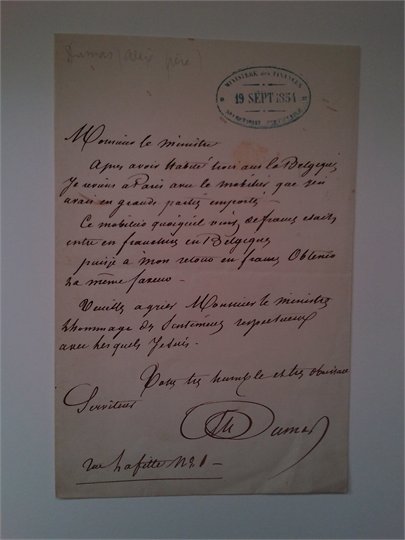 Dumas (Alex père)
MINISTÈRE DES FINANCES
19 SEPT 1854
Monsieur le ministre
Apres avoir habité trois ans la Belgique,
Je reviens a Paris avec le mobilier que j'en
avais en grande partie emporté
Ce mobilier quoiqu'il vint de france étant
entré en franchise en Belgique
puis-je a mon retour en france Obtenir
la même faveur -
Veuillez agréer Monsieur le ministre
l'hommage des Sentimens respectueux
avec lesquels Je suis.
Votre très humble et très obéissant
Serviteur
Dumas
rue Lafitte N° 1 -